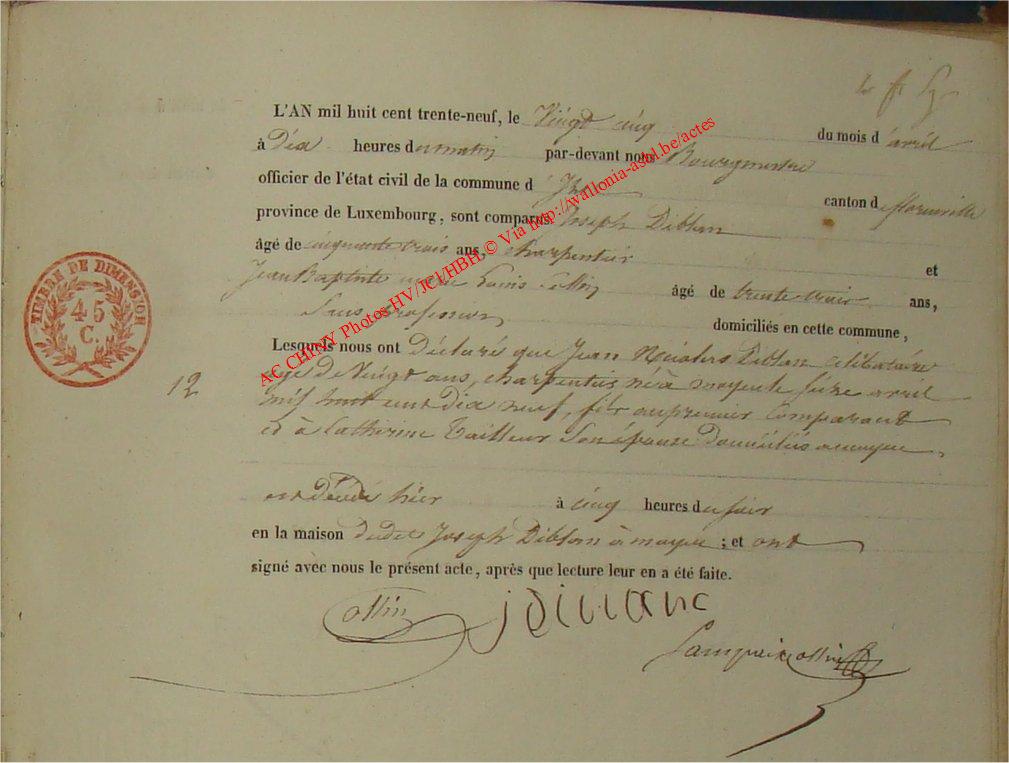 L'AN mil huit cent trente-neuf, le Vingt cinq du mois d'avril
à Dix heures du matin par-devant nous Bourgmestre
officier de l'état civil de la commune d' canton de florenville
province de Luxembourg, sont comparus Joseph Diblan
âgé de cinquante trois ans, charpentier et
Jean Baptiste Louis Collin âgé de trente trois ans,
Sans profession domiciliés en cette commune,
Lesquels nous ont Déclaré que Jean Nicolas Diblan célibataire
agé de Vingt ans, charpentier né à moyen le seize avril
mil huit cent dix neuf, fils au premier Comparant
et à Catherine Tailleur Son épouse Domiciliés a moyen,
est décédé hier à cinq heures du soir
en la maison dudit Joseph Diblan à moyen ; et ont
signé avec nous le présent acte, après que lecture leur en a été faite.
12
TIMBRE DE DIMENSION
45
C.
Collin
AC CHINY Photos HV/JCl/HBH © Via http://wallonia-asbl.be/actes